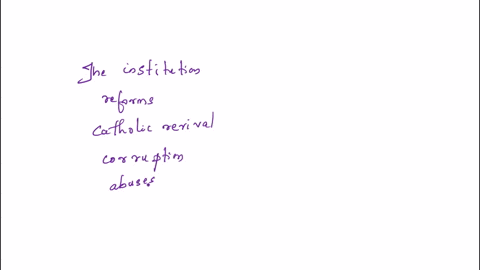 The institution
reforms
catholic revival
corruption
abuses